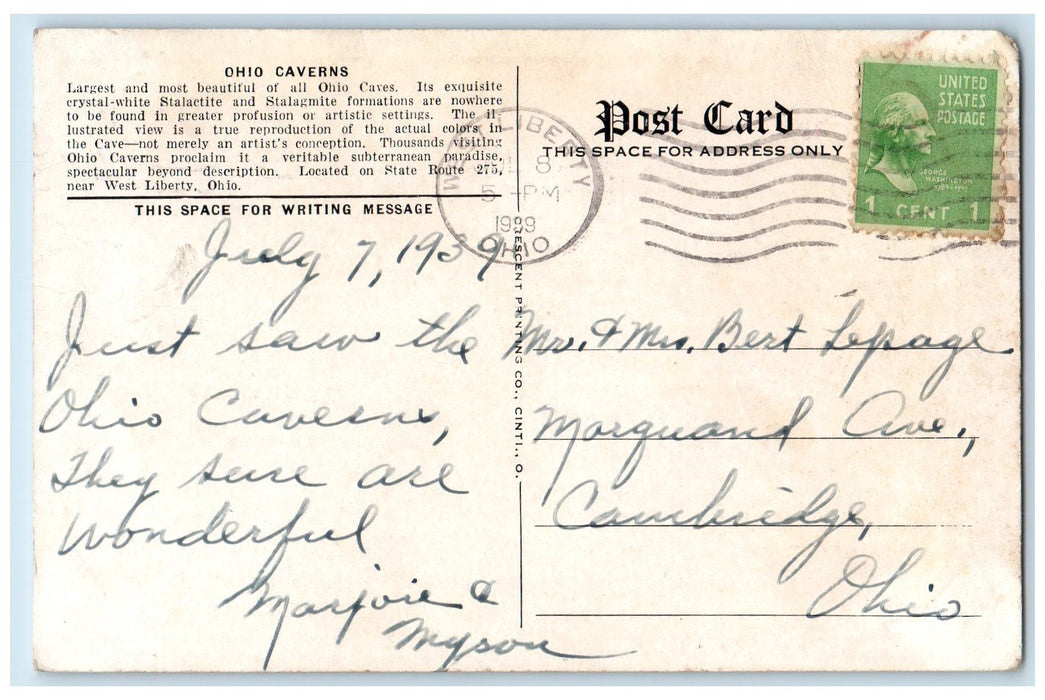 OHIO CAVERNS
Largest and most beautiful of all Ohio Caves. Its exquisite
crystal-white Stalactite and Stalagmite formations are nowhere
to be found in greater profusion or artistic settings. The il
lustrated view is a true reproduction of the actual colors in
the Cave—not merely an artist's conception. Thousands visiting
Ohio Caverns proclaim it a veritable subterranean paradise,
spectacular beyond description. Located on State Route 275,
near West Liberty, Ohio.
THIS SPACE FOR WRITING MESSAGE
July 7, 1939
Just saw the
Ohio Caverns,
They sure are
Wonderful
Marjorie &
Myson
CRESCENT PRINTING CO., CINTI., O.
WEST LIBERTY
8
5 - PM
1939
OHIO
Post Card
THIS SPACE FOR ADDRESS ONLY
UNITED
STATES
POSTAGE
GEORGE
WASHINGTON
1789-1797
1 CENT 1
Mr. & Mrs. Bert Lepage
Marquand Ave.,
Cambridge,
Ohio